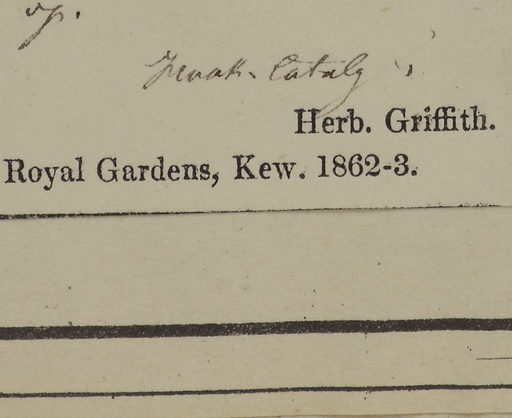 Catalg
Herb. Griffith.
Royal Gardens, Kew. 1862-3.